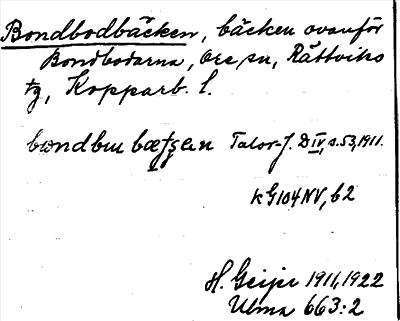 Bondbodbäcken, bäcken ovanför
Bondbodarna, Ore sn, Rättviks
tg, Kopparb. l.
Talar-J. D IV, s. 53, 1911.
K G104 NV, b2
H. Geijer 1911, 1922
Ulma 663:2